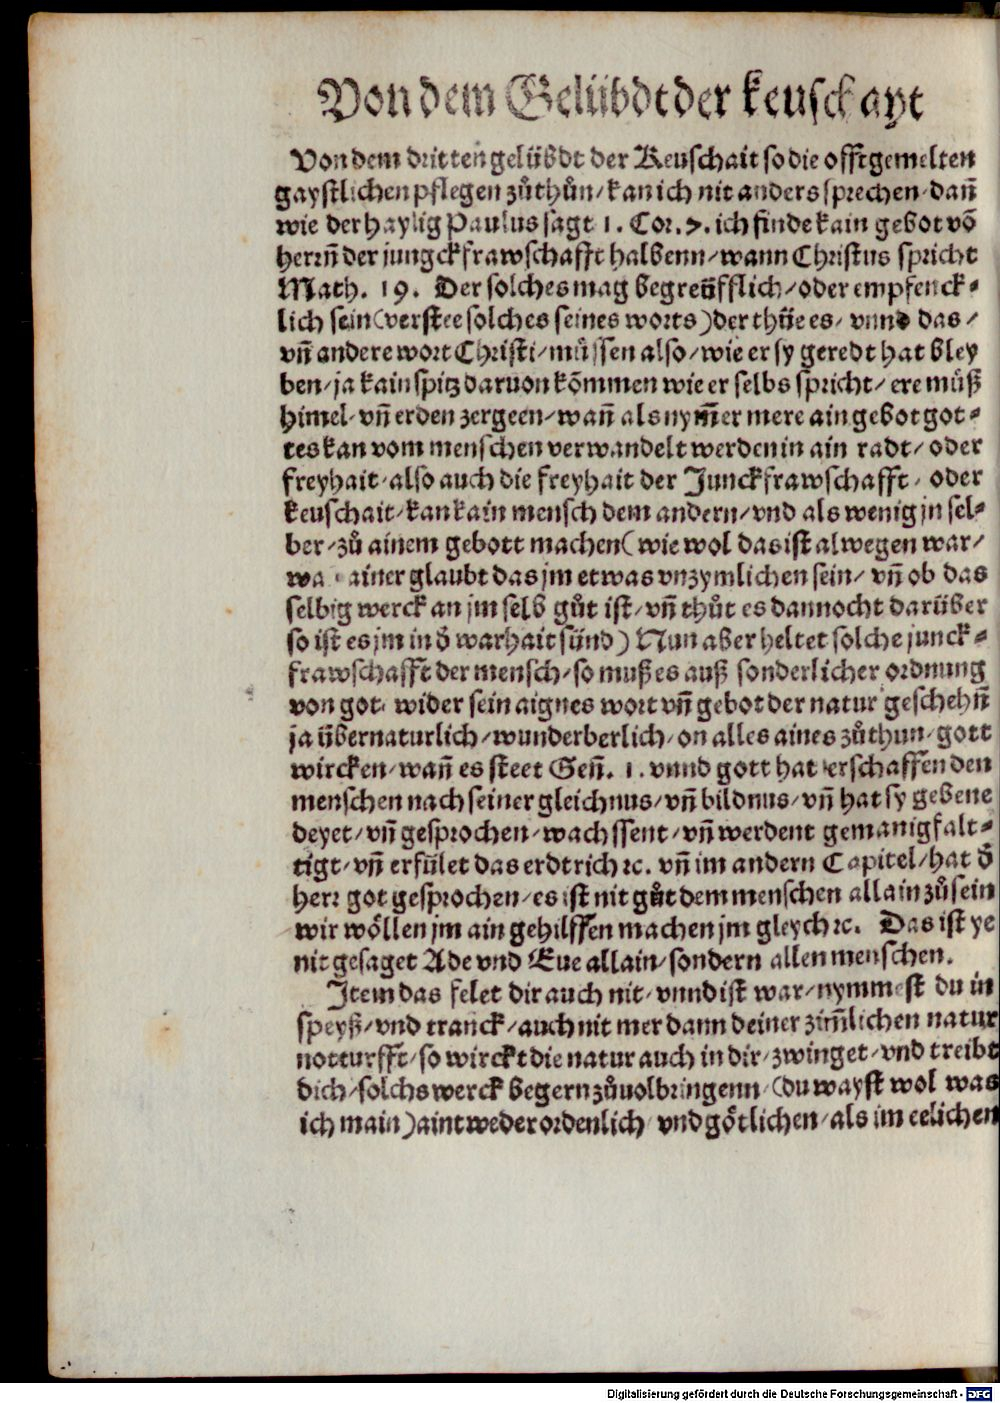 Von dem Gelübdt der keuschayt
Von dem dritten gelübdt der Keuschait so die offtgemelten
gaystlichen pflegen zůthůn / kan ich nit anders sprechen / dañ
wie der haylig Paulus sagt 1. Cor. 7. ich finde kain gebot võ
herrñ der jungckfrawschafft halbenn / wann Christus spricht
Math. 19. Der solches mag begreüfflich / oder empfenck⸗
lich sein (verstee solches seines worts) der thüe es / vnnd das /
vñ andere wort Christi / müssen also / wie er sy geredt hat bley
ben / ja kain spitz daruon kõmmen wie er selbs spricht / ere můß
himel / vñ erden zergeen / wañ als nym̃er mere ain gebot got⸗
tes kan vom menschen verwandelt werden in ain radt / oder
freyhait / also auch die freyhait der Junckfrawschafft / oder
keuschait / kan kain mensch dem andern / vnd als wenig jn sel⸗
ber / zů ainem gebott machen (wie wol das ist alwegen war /
wa ainer glaubt das jm etwas vnzymlichen sein / vñ ob das
selbig werck an jm selb gůt ist / vñ thůt es dannocht darüber
so ist es jm in ð warhait sünd) Nun aber heltet solche junck⸗
frawschafft der mensch / so muß es auß sonderlicher ordnung
von got / wider sein aignes wort vñ gebot der natur geschehñ
ja übernaturlich / wunderberlich / on alles aines zůthun / gott
wircken / wañ es steet Geñ. 1. vnnd gott hat erschaffen den
menschen nach seiner gleichnus / vñ bildnus / vñ hat sy gebene
deyet / vñ gesprochen / wachssent / vñ werdent gemanigfalt⸗
tigt / vñ erfület das erdtrich ꝛc. vñ im andern Capitel / hat ð
herr got gesprochen / es ist nit gůt dem menschen allain zů sein
wir wöllen jm ain gehilffen machen jm gleych ꝛc. Das ist ye
nit gesaget Ade vnd Eue allain / sondern allen menschen.
Item das felet dir auch nit / vnnd ist war / nymmest du in
speyß / vnd tranck / auch nit mer dann deiner zim̃lichen natur
notturfft / so wirckt die natur auch in dir / zwinget / vnd treibt
dich / solchs werck begern zůuolbringenn / (du wayst wol was
ich main) aintweder ordenlich / vnd götlichen / als im eelichen
Digitalisierung gefördert durch die Deutsche Forschungsgemeinschaft - DFG